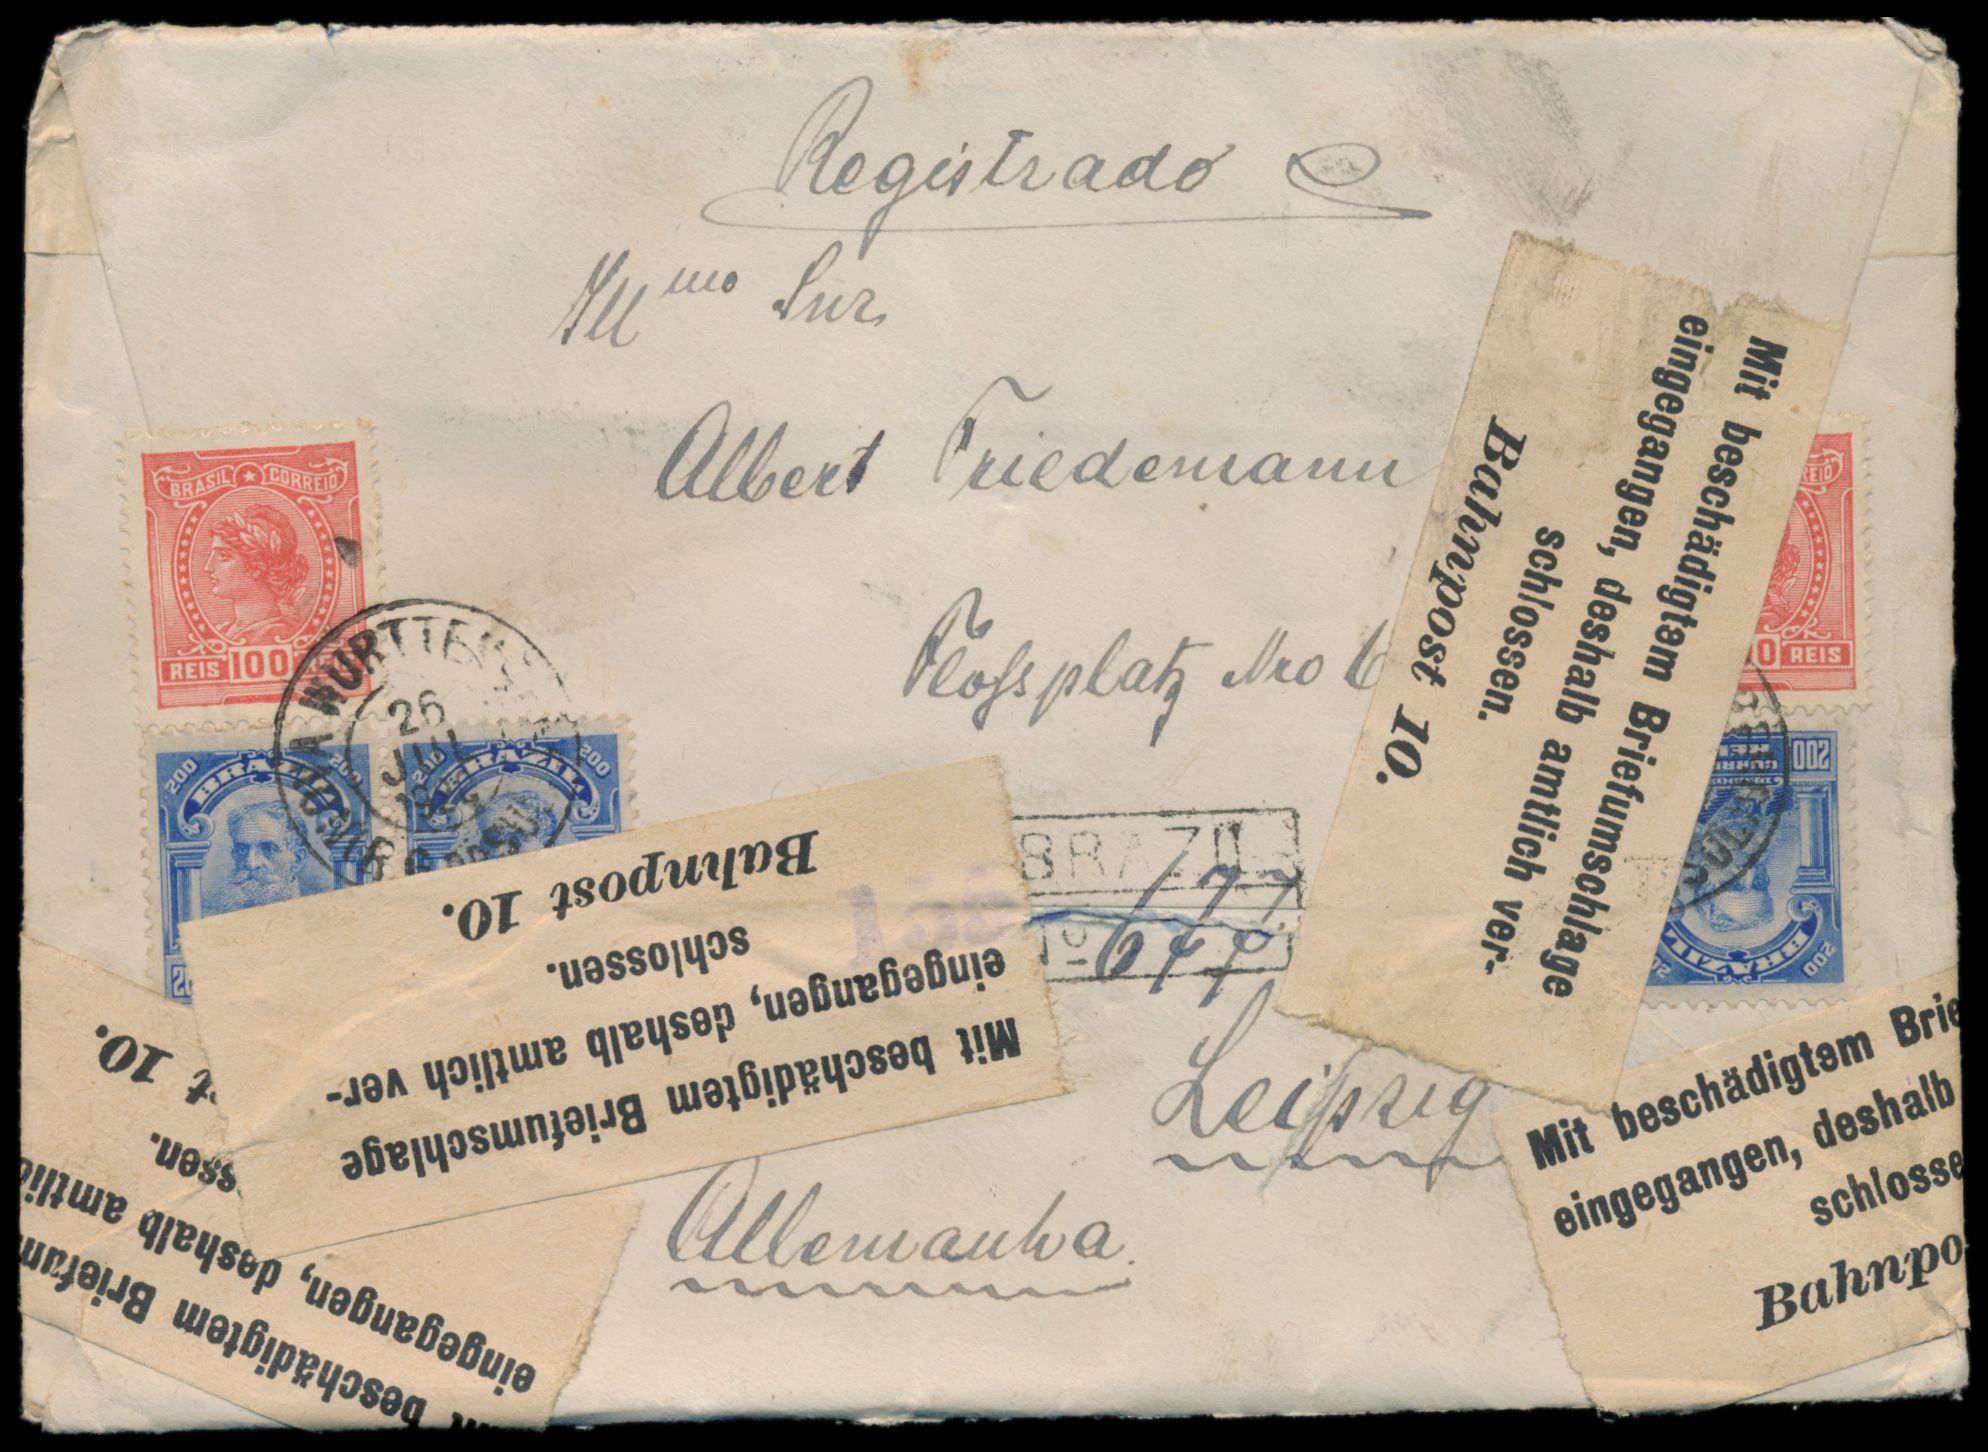 Registrado
Illmo Snr
Albert Friedemann
Flossplatz Nro 6
Leipzig
Allemanha
BRASIL CORREIO
REIS 100 REIS
200 BRAZIL 200
200 BRAZIL 200
NOVA WURTTEM
26
JUL
BRAZIL
No
177
644
Mit beschädigtem Briefumschlage
eingegangen, deshalb amtlich ver-
schlossen.
Bahnpost 10.
Mit beschädigtem Briefumschlage
eingegangen, deshalb amtlich ver-
schlossen.
Bahnpost 10.
beschädigtem Briefum
eingegangen, deshalb amtli
ssen.
t 10.
Mit beschädigtem Brie
eingegangen, deshalb
schlosse
Bahnpo
EIO
0 REIS
200
BRAZIL
200